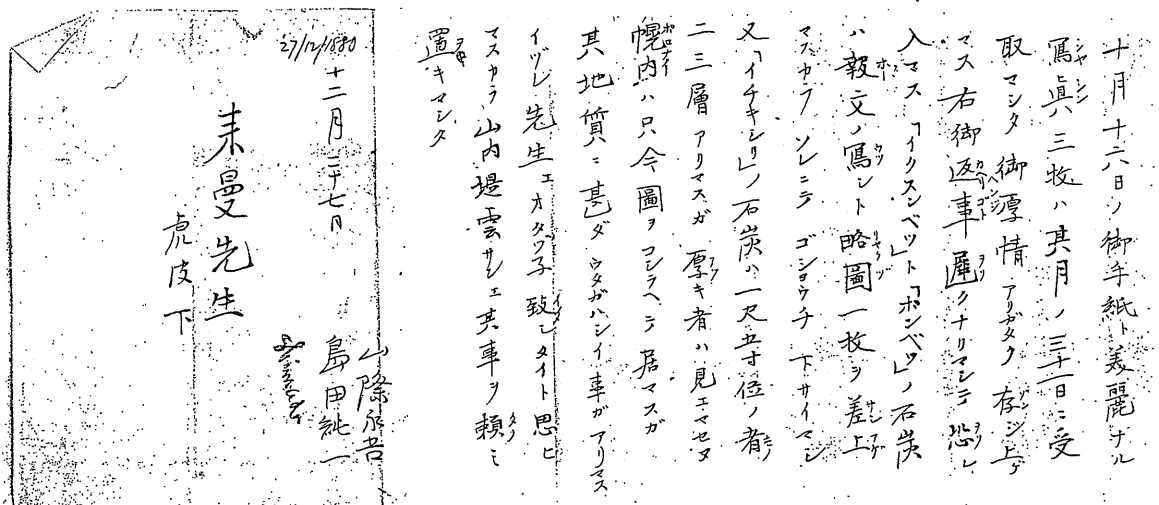 十月十六日ノ御手紙ト美麗ナル
寫眞ハ三枚ハ其月ノ三十一日ニ受
取マシタ御厚情アリガタク存ジ上ゲ
マス右御返事遲クナリマシテ恐レ
入マス「イクスンベツ」ト「ポンベツ」ノ石炭
ハ報文ノ寫シト略圖一枚ヲ差上
マスカラソレニテゴショウチ下サイマシ
又「イチキシリ」ノ石炭ハ一尺五寸位ノ者
二三層アリマスガ厚キ者ハ見エマセヌ
幌内ハ只今圖ヲコシラヘテ居マスガ
其地質ニ甚ダウタガハシイ事ガアリマス
イヅレ先生エオタヅ子致シタイト思ヒ
マスカラ山内堤雲サンエ其事ヲ頼ミ
置キマシタ
27/12/1880
十二月二十七日
山際永吾
島田純一
来曼先生
虎皮下